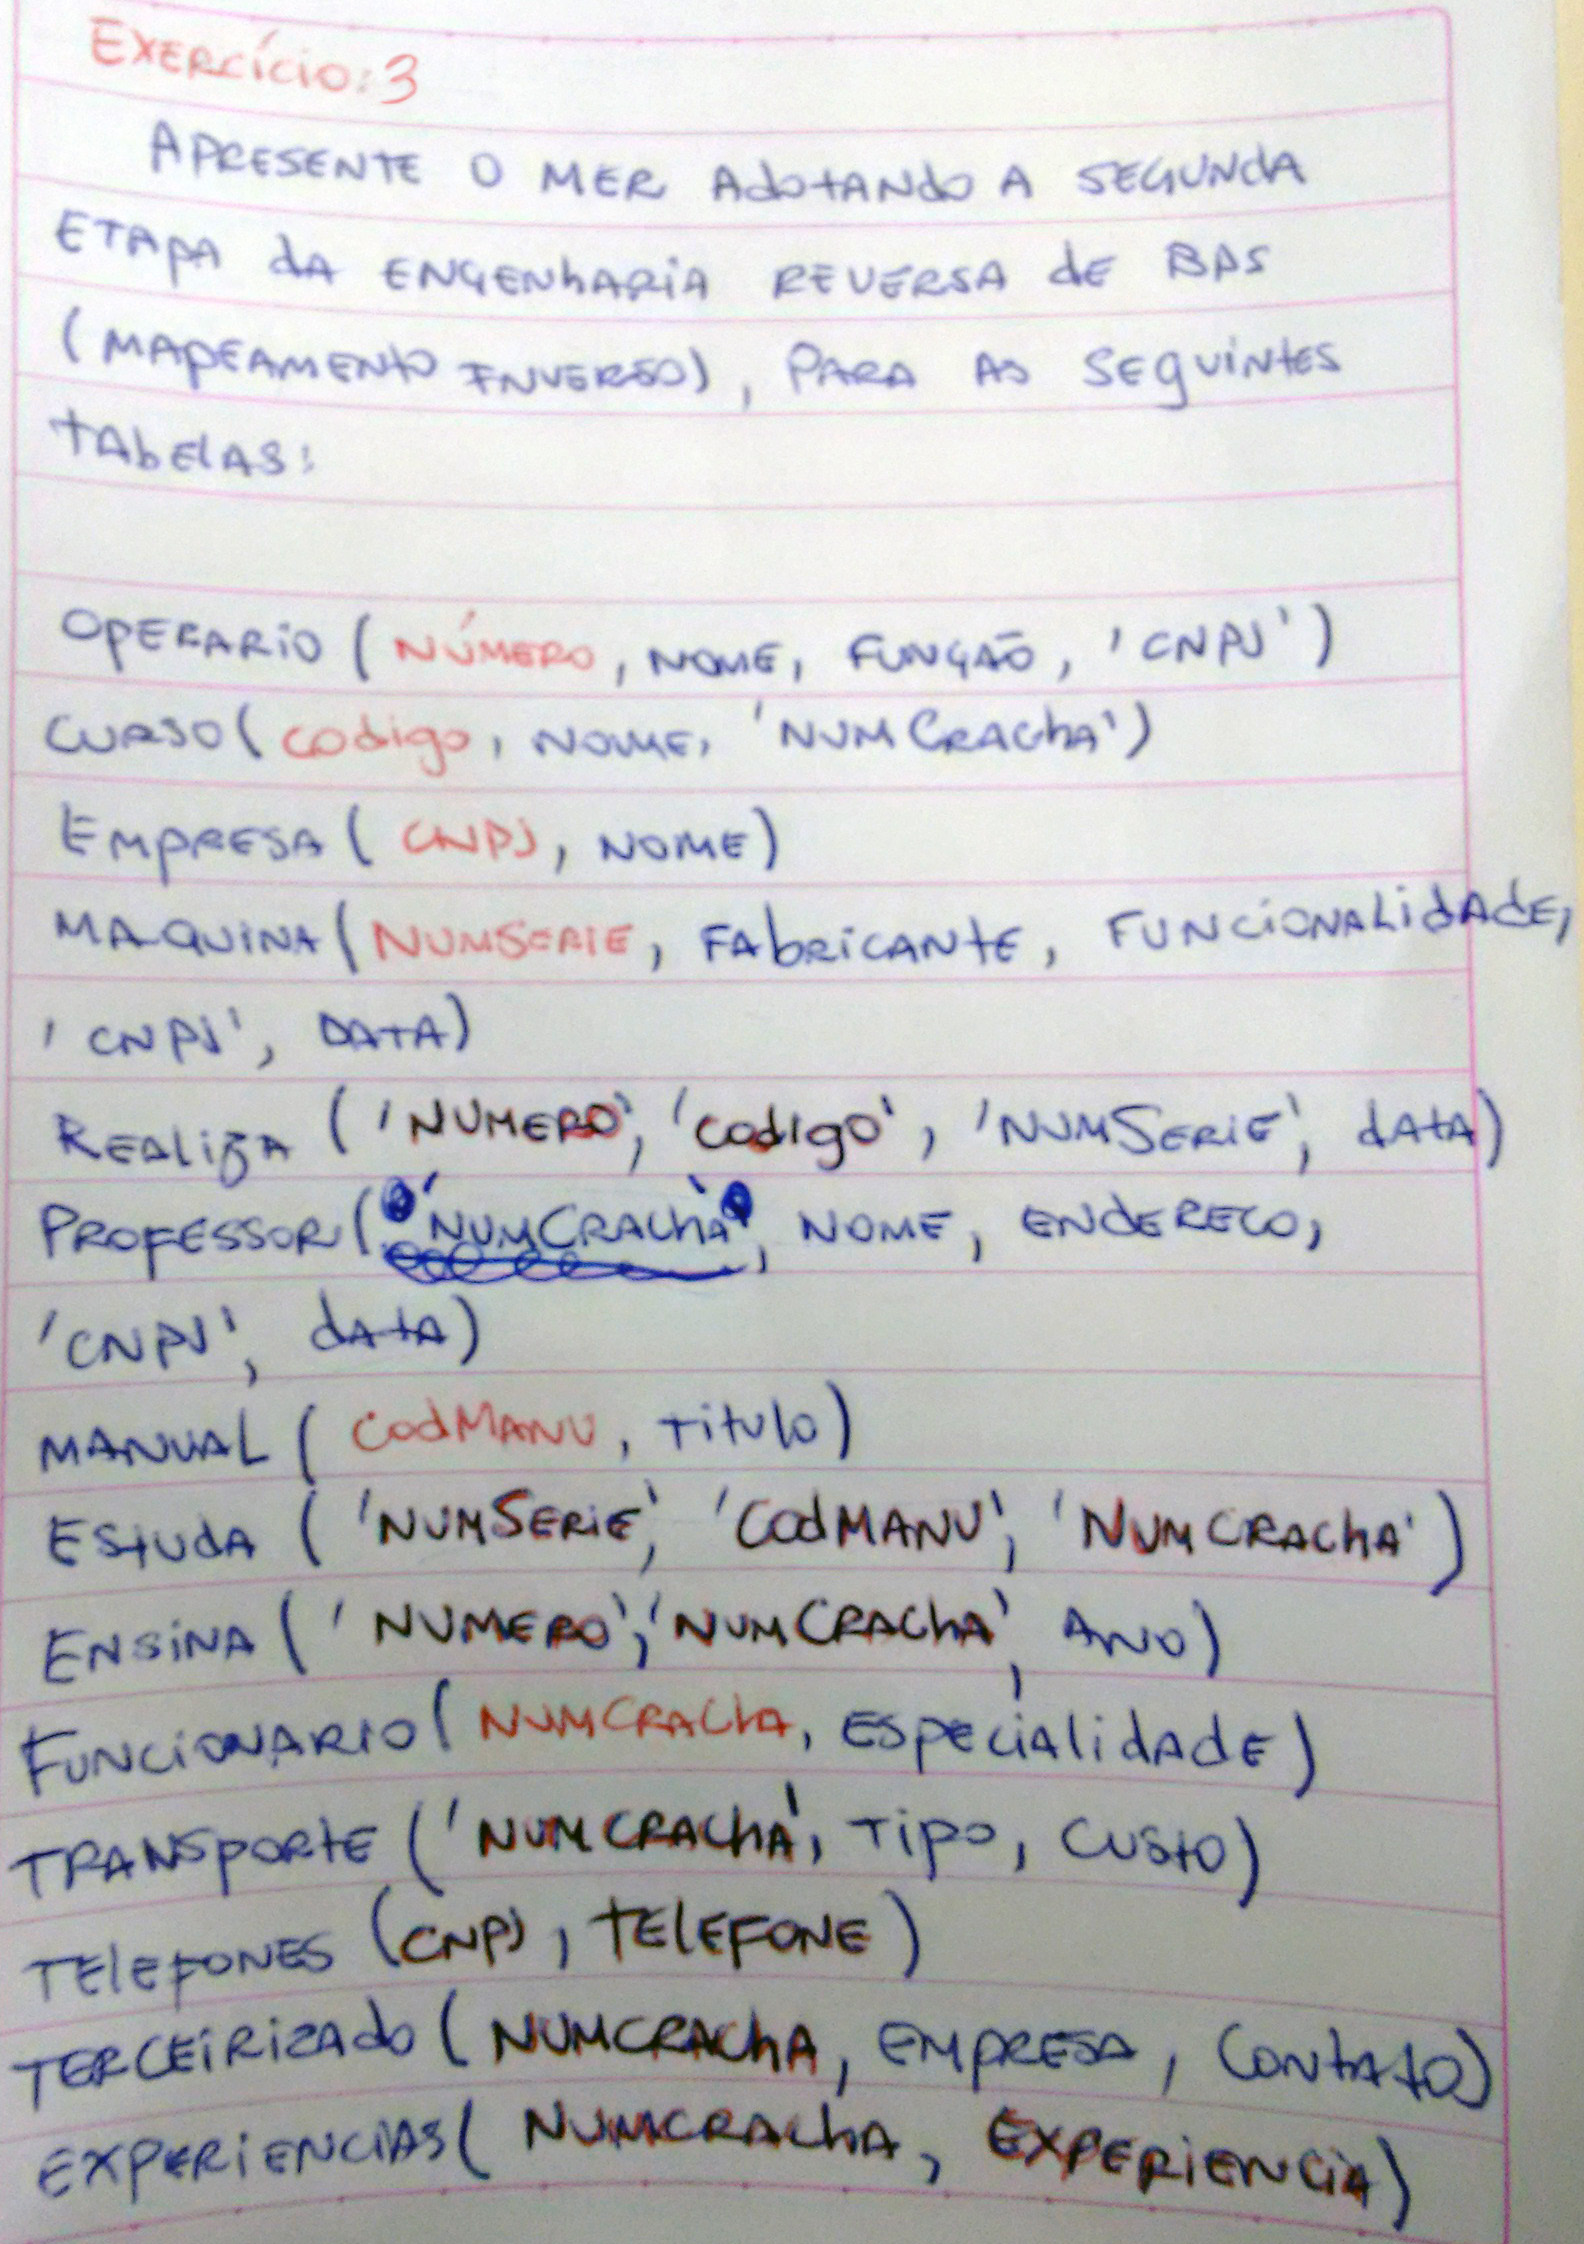 EXERCÍCIO: 3
APRESENTE O MER ADOTANDO A SEGUNDA
ETAPA DA ENGENHARIA REVERSA DE BDS
(MAPEAMENTO INVERSO), PARA AS SEGUINTES
TABELAS:
OPERARIO (NÚMERO, NOME, FUNÇÃO, 'CNPJ')
CURSO (CODIGO, NOME, 'NUMCRACHA')
EMPRESA (CNPJ, NOME)
MAQUINA (NUMSERIE, FABRICANTE, FUNCIONALIDADE,
'CNPJ', DATA)
REALIZA ('NUMERO', 'CODIGO', 'NUMSERIE', DATA)
PROFESSOR ('NUMCRACHA', NOME, ENDERECO,
'CNPJ', DATA)
MANUAL (CODMANU, TITULO)
ESTUDA ('NUMSERIE', 'CODMANU', 'NUMCRACHA')
ENSINA ('NUMERO', 'NUMCRACHA', ANO)
FUNCIONARIO (NUMCRACHA, ESPECIALIDADE)
TRANSPORTE ('NUMCRACHA', TIPO, CUSTO)
TELEFONES (CNPJ, TELEFONE)
TERCEIRIZADO (NUMCRACHA, EMPRESA, CONTATO)
EXPERIENCIAS (NUMCRACHA, EXPERIENCIA)